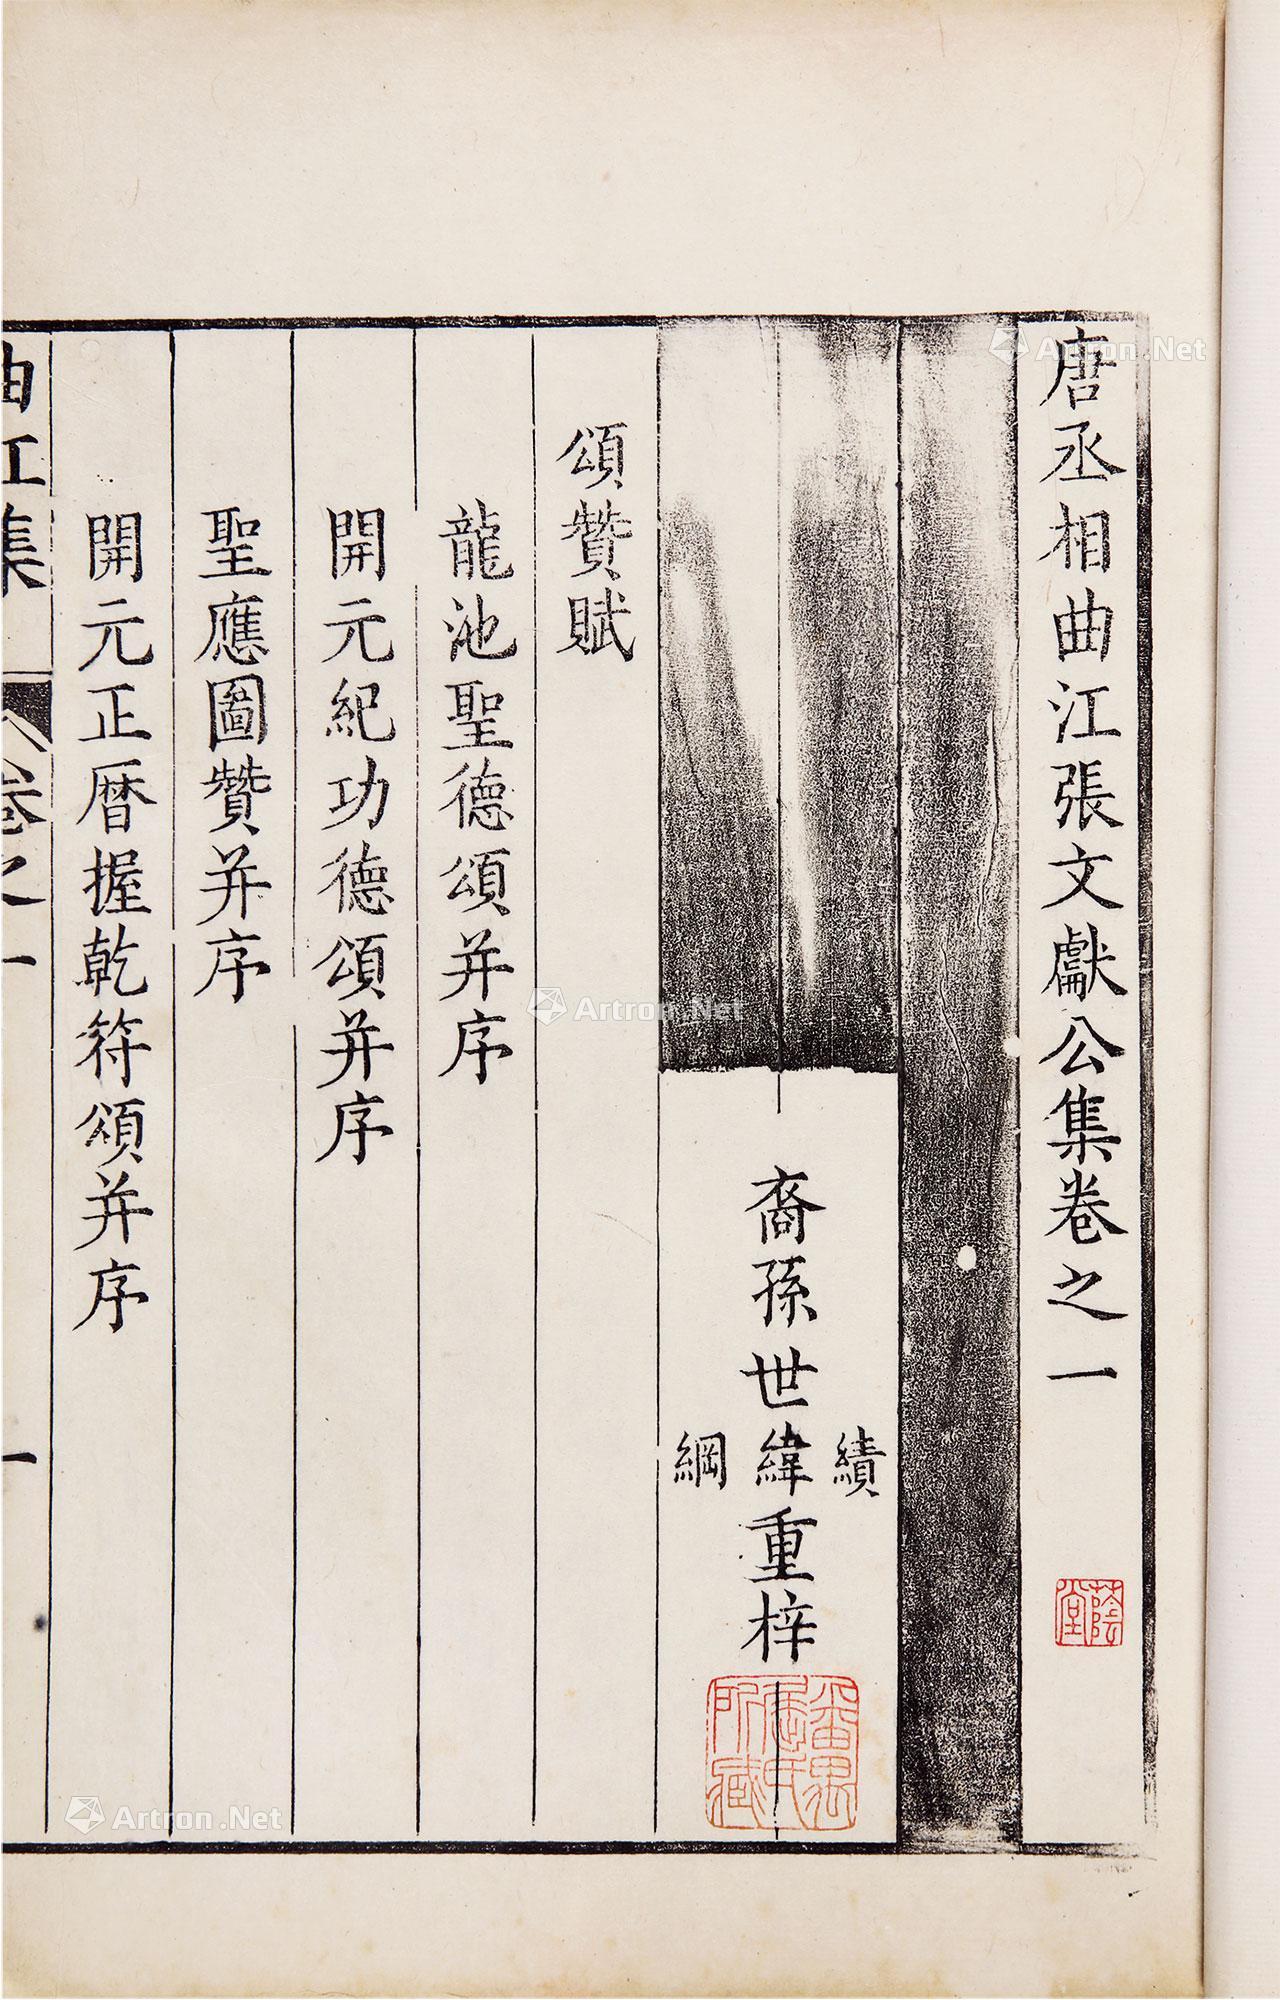 唐丞相曲江張文獻公集卷之一
蔭堂
績
裔孫世緯重梓
綱
番禺屈氏所藏
頌贊賦
龍池聖德頌并序
開元紀功德頌并序
聖應圖贊并序
開元正曆握乾符頌并序
曲江集 卷之一 一
Artron.Net
Artron.Net
Artron.Net